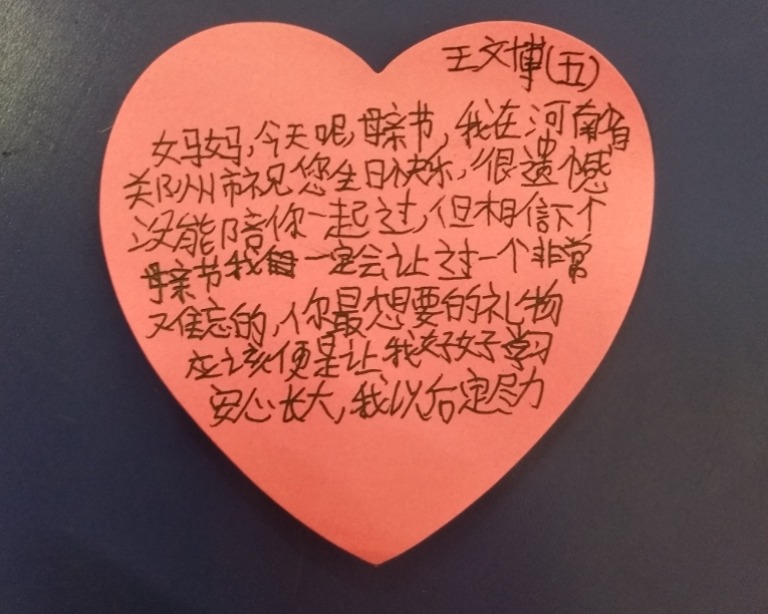 王文博(五)
妈妈,今天呢,母亲节,我在河南省
郑州市祝您生日快乐,很遗憾
没能陪你一起过,但相信下个
母亲节我一定会让过一个非常
难忘的,你最想要的礼物
应该便是让我好好学习
安心长大,我以后定尽力